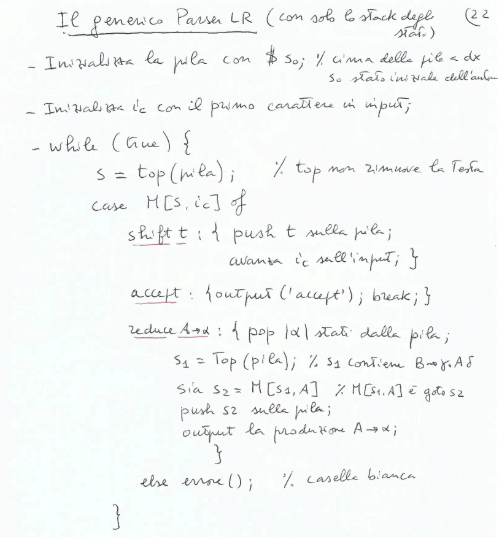 Il generico Parser LR (con solo lo stack degli stati) (22
- Inizializza la pila con $ s0; % cima della pila a dx
s0 stato iniziale dell'automa
- Inizializza ic con il primo carattere in input;
- while (true) {
s = top(pila); % top non rimuove la testa
case M[s, ic] of
shift t : { push t sulla pila;
avanza ic sull'input; }
accept : {output ('accept'); break; }
reduce A→α : { pop |α| stati dalla pila;
s1 = Top (pila); % s1 contiene B→γ.Aδ
sia s2 = M[s1, A] % M[s1, A] è goto s2
push s2 sulla pila;
output la produzione A→α;
}
else errore(); % casella bianca
}